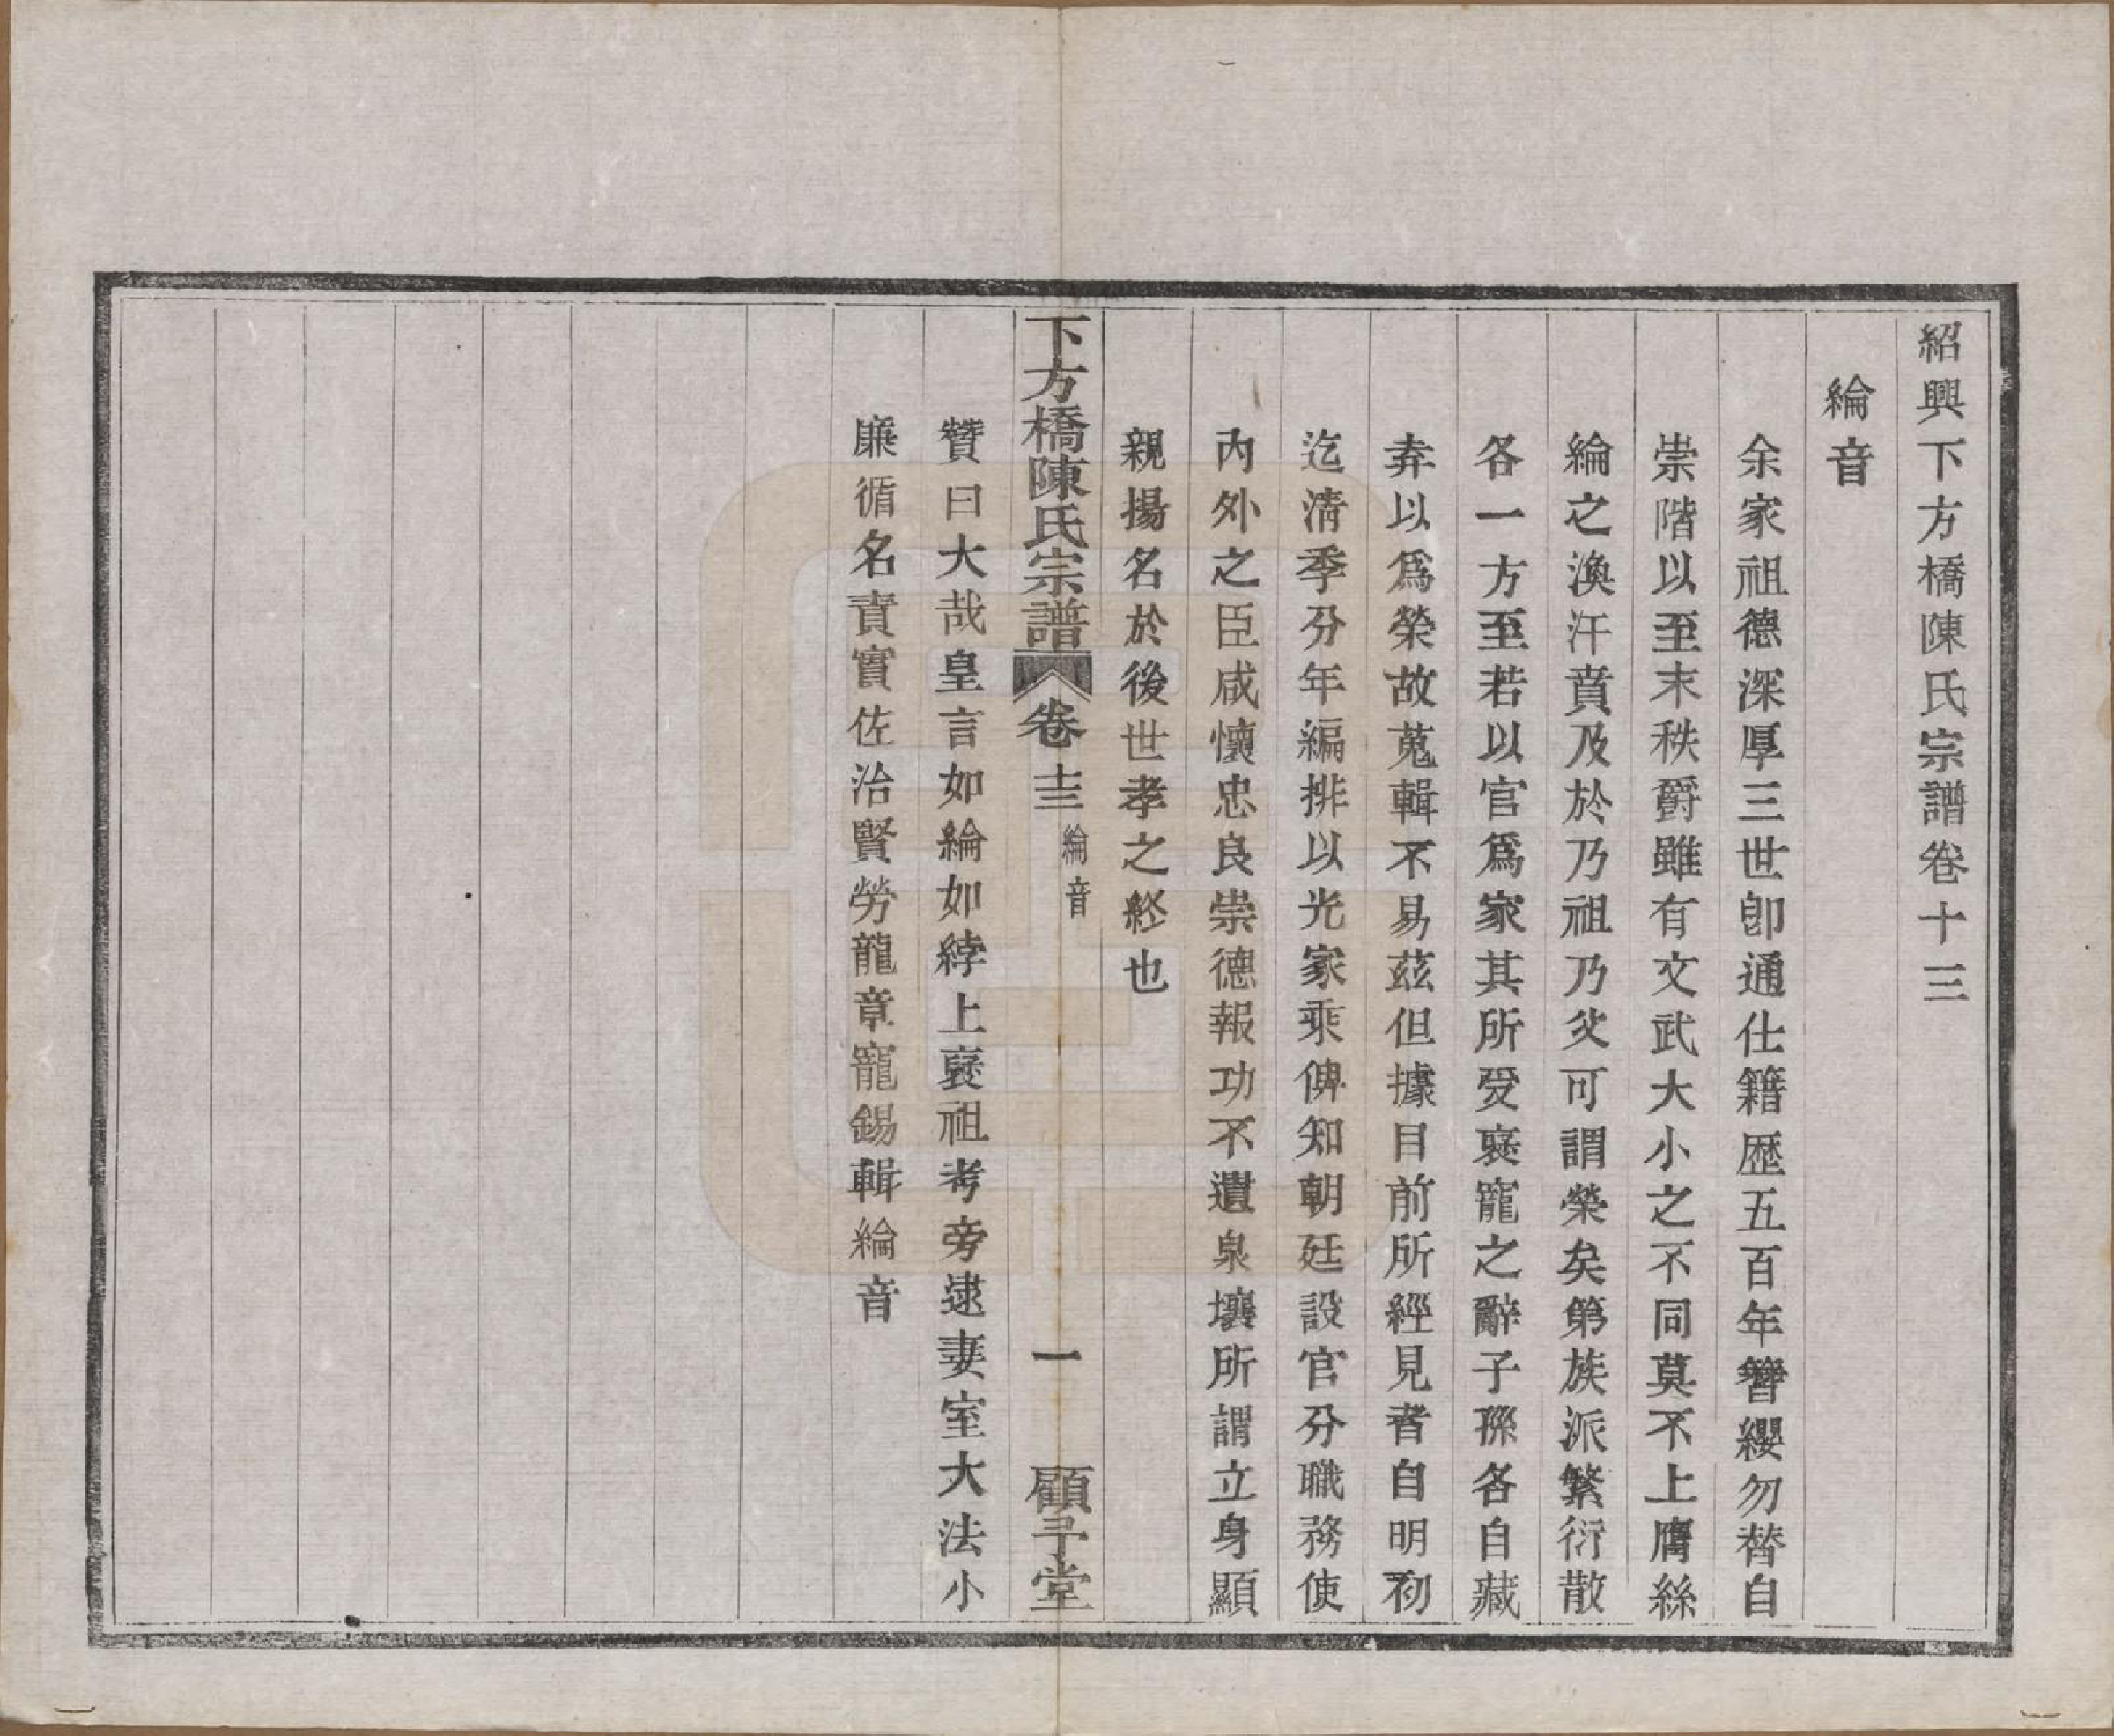 紹興下方橋陳氏宗譜卷十三
綸音
余家祖德深厚三世卽通仕籍歷五百年簪纓勿替自
崇階以至末秩爵雖有文武大小之不同莫不上膺絲
綸之渙汗賁及於乃祖乃父可謂榮矣第族派繁衍散
各一方至若以官爲家其所受褒寵之辭子孫各自藏
弆以爲榮故蒐輯不易茲但據目前所經見者自明初
迄淸季分年編排以光家乘俾知朝廷設官分職務使
內外之臣咸懷忠良崇德報功不遺泉壤所謂立身顯
親揚名於後世孝之終也
下方橋陳氏宗譜 卷十三 綸音 一 顧予堂
贊曰大哉皇言如綸如綍上褒祖考旁逮妻室大法小
廉循名責實佐治賢勞龍章寵錫輯綸音